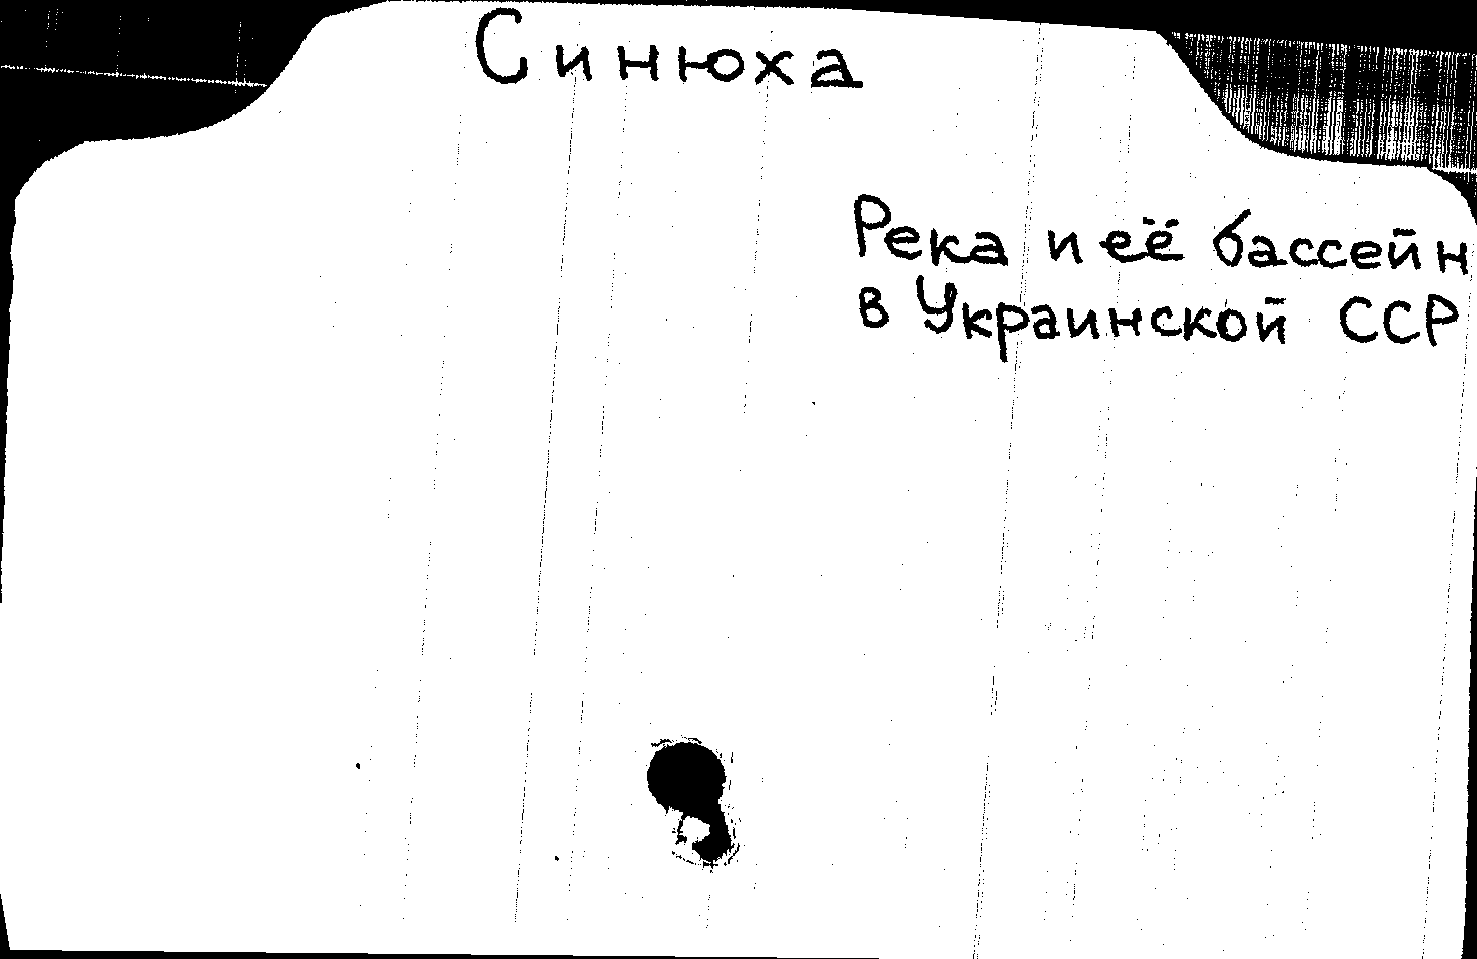 Синюха
Река и её бассейн
в Украинской ССР